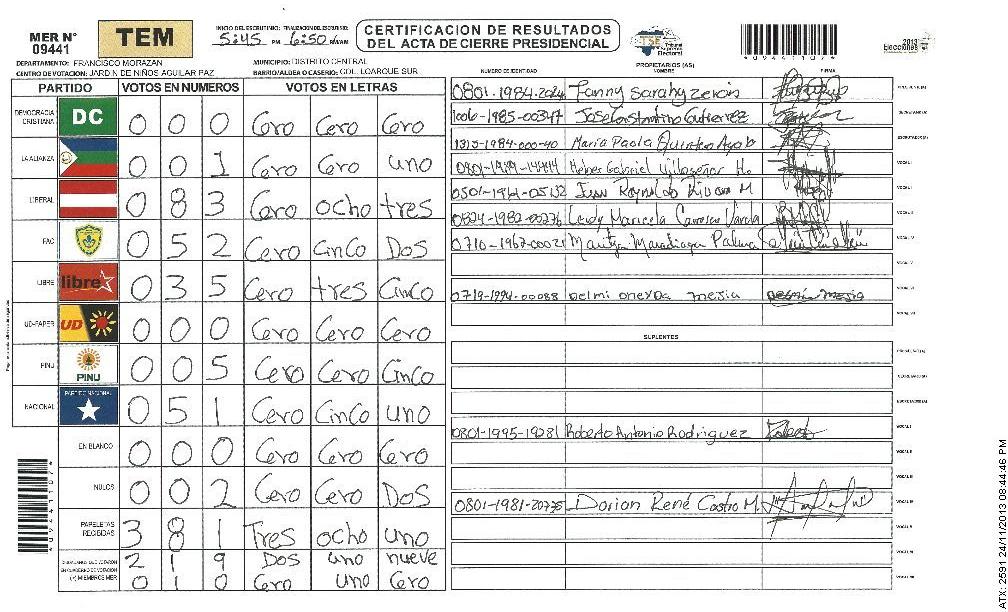 MER N° 09441
TEM
INICIO DEL ESCRUTINIO: 5:45 PM FINALIZACION DEL ESCRUTINIO: 6:50
CERTIFICACION DE RESULTADOS
DEL ACTA DE CIERRE PRESIDENCIAL
TSE Tribunal Supremo Electoral
2013 Elecciones
DEPARTAMENTO: FRANCISCO MORAZAN
MUNICIPIO: DISTRITO CENTRAL
CENTRO DE VOTACION: JARDIN DE NIÑOS AGUILAR PAZ
BARRIO/ALDEA O CASERIO: COL. LOARQUE SUR
PARTIDO VOTOS EN NUMEROS VOTOS EN LETRAS
DEMOCRACIA CRISTIANA DC 0 0 0 Cero Cero Cero
LA ALIANZA 0 0 1 Cero Cero uno
LIBERAL 0 8 3 Cero ocho tres
FAC 0 5 2 Cero Cinco Dos
LIBRE libre 0 3 5 Cero tres Cinco
UD-FAPER UD 0 0 0 Cero Cero Cero
PINU PINU 0 0 5 Cero Cero Cinco
NACIONAL PARTIDO NACIONAL 0 5 1 Cero Cinco uno
EN BLANCO 0 0 0 Cero Cero Cero
NULOS 0 0 2 Cero Cero Dos
PAPELETAS RECIBIDAS 3 8 1 Tres ocho uno
CIUDADANOS QUE VOTARON EN CUADERNO DE VOTACION 2 1 9 Dos uno nueve
(+) MIEMBROS MER 0 1 0 Cero uno Cero
PROPIETARIOS (AS)
NUMERO DE IDENTIDAD NOMBRE FIRMA
0801-1984- Fanny Sarahy zeron
1006-1985-00347 Jose Constantino Gutierrez
1313-1984-000-40 Maria Paola
Gabriel H.
Juan M
0824-1982-00276 Leidy Maricela
0710-1967-00021 Maritza Maradiaga Palma
0719-1994-00088 Delmi oneyda mejia Delmi mejia
SUPLENTES
0801-1995-19281 Roberto Antonio Rodriguez
0801-1981-20735 Dorian René Castro M.
4094411074
4094411074
ATX: 2591 24/11/2013 08:44:46 PM